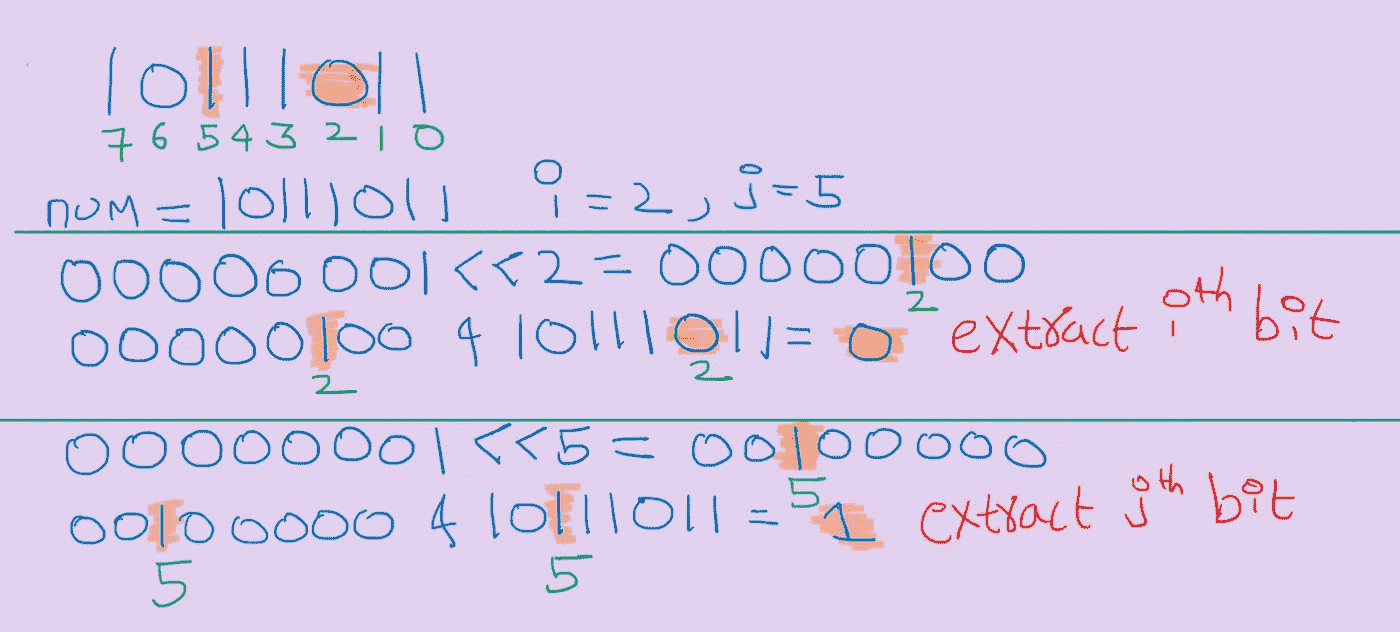 1 0 1 1 1 0 1 1
7 6 5 4 3 2 1 0
num = 10111011 i = 2, j = 5
00000001 << 2 = 00000100
2
00000100 & 10111011 = 0 extract ith bit
2 2
00000001 << 5 = 00100000
5
00100000 & 10111011 = 1 extract jth bit
5 5